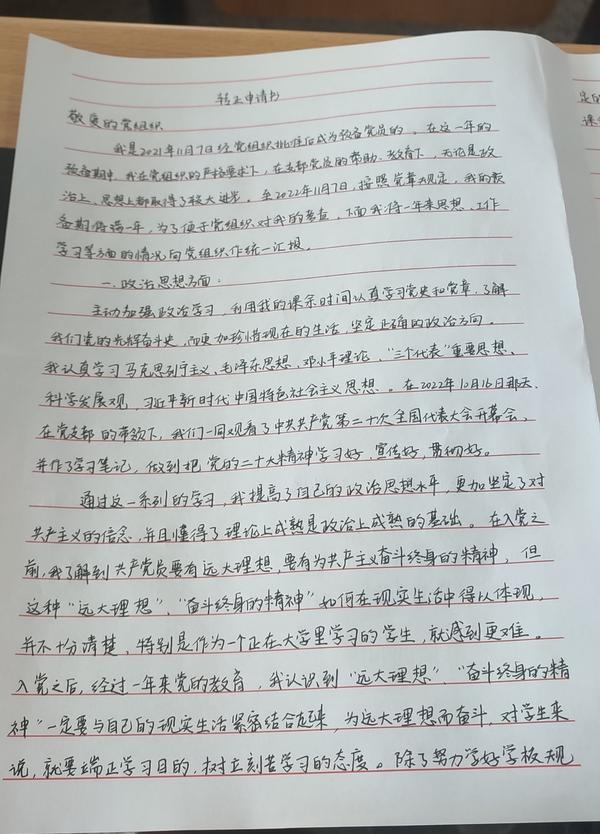 转正申请书
敬爱的党组织
我是2021年11月7日经党组织批准后成为预备党员的。在这一年的
预备期中,我在党组织的严格要求下,在支部党员的帮助、教育下,无论是政
治上、思想上都取得了极大进步。至2022年11月7日,按照党章规定,我的预
备期将满一年,为了便于党组织对我的考查,下面我将一年来思想、工作
学习等方面的情况向党组织作统一汇报。
一、政治思想方面:
主动加强政治学习,利用我的课余时间认真学习党史和党章,了解
我们党的光辉奋斗史,而更加珍惜现在的生活,坚定正确的政治方向。
我认真学习马克思列宁主义、毛泽东思想、邓小平理论、“三个代表”重要思想、
科学发展观、习近平新时代中国特色社会主义思想。在2022年10月16日那天,
在党支部的带领下,我们一同观看了中共共产党第二十次全国代表大会开幕会,
并作了学习笔记,做到把党的二十大精神学习好、宣传好、贯彻好。
通过这一系列的学习,我提高了自己的政治思想水平,更加坚定了对
共产主义的信念,并且懂得了理论上成熟是政治上成熟的基础。在入党之
前,我了解到共产党员要有远大理想,要有为共产主义奋斗终身的精神,但
这种“远大理想”、“奋斗终身的精神”如何在现实生活中得以体现,
并不十分清楚,特别是作为一个正在大学里学习的学生,就感到更难。
入党之后,经过一年来党的教育,我认识到“远大理想”、“奋斗终身的精
神”一定要与自己的现实生活紧密结合起来,为远大理想而奋斗,对学生来
说,就要端正学习目的,树立刻苦学习的态度。除了努力学好学校规
定的
课